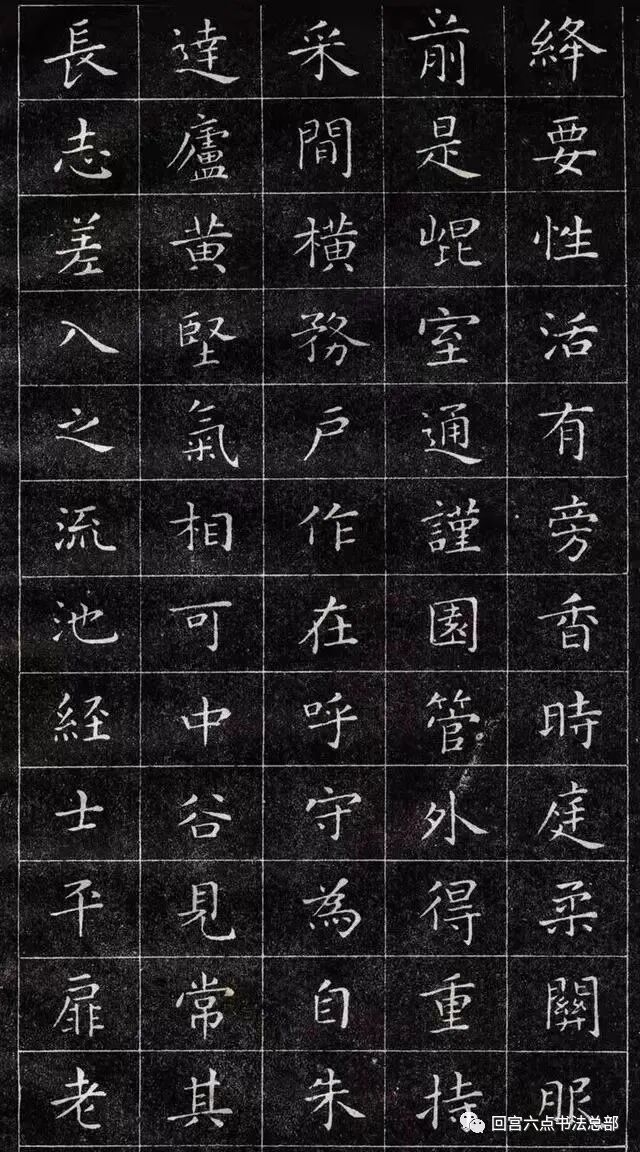 絳要性活有旁香時庭柔關服
前是崐室通謹園管外得重持
采間橫務戶作在呼守為自朱
達廬黃堅氣相可中谷見常其
長志差入之流池経士平扉老
回宫六点书法总部